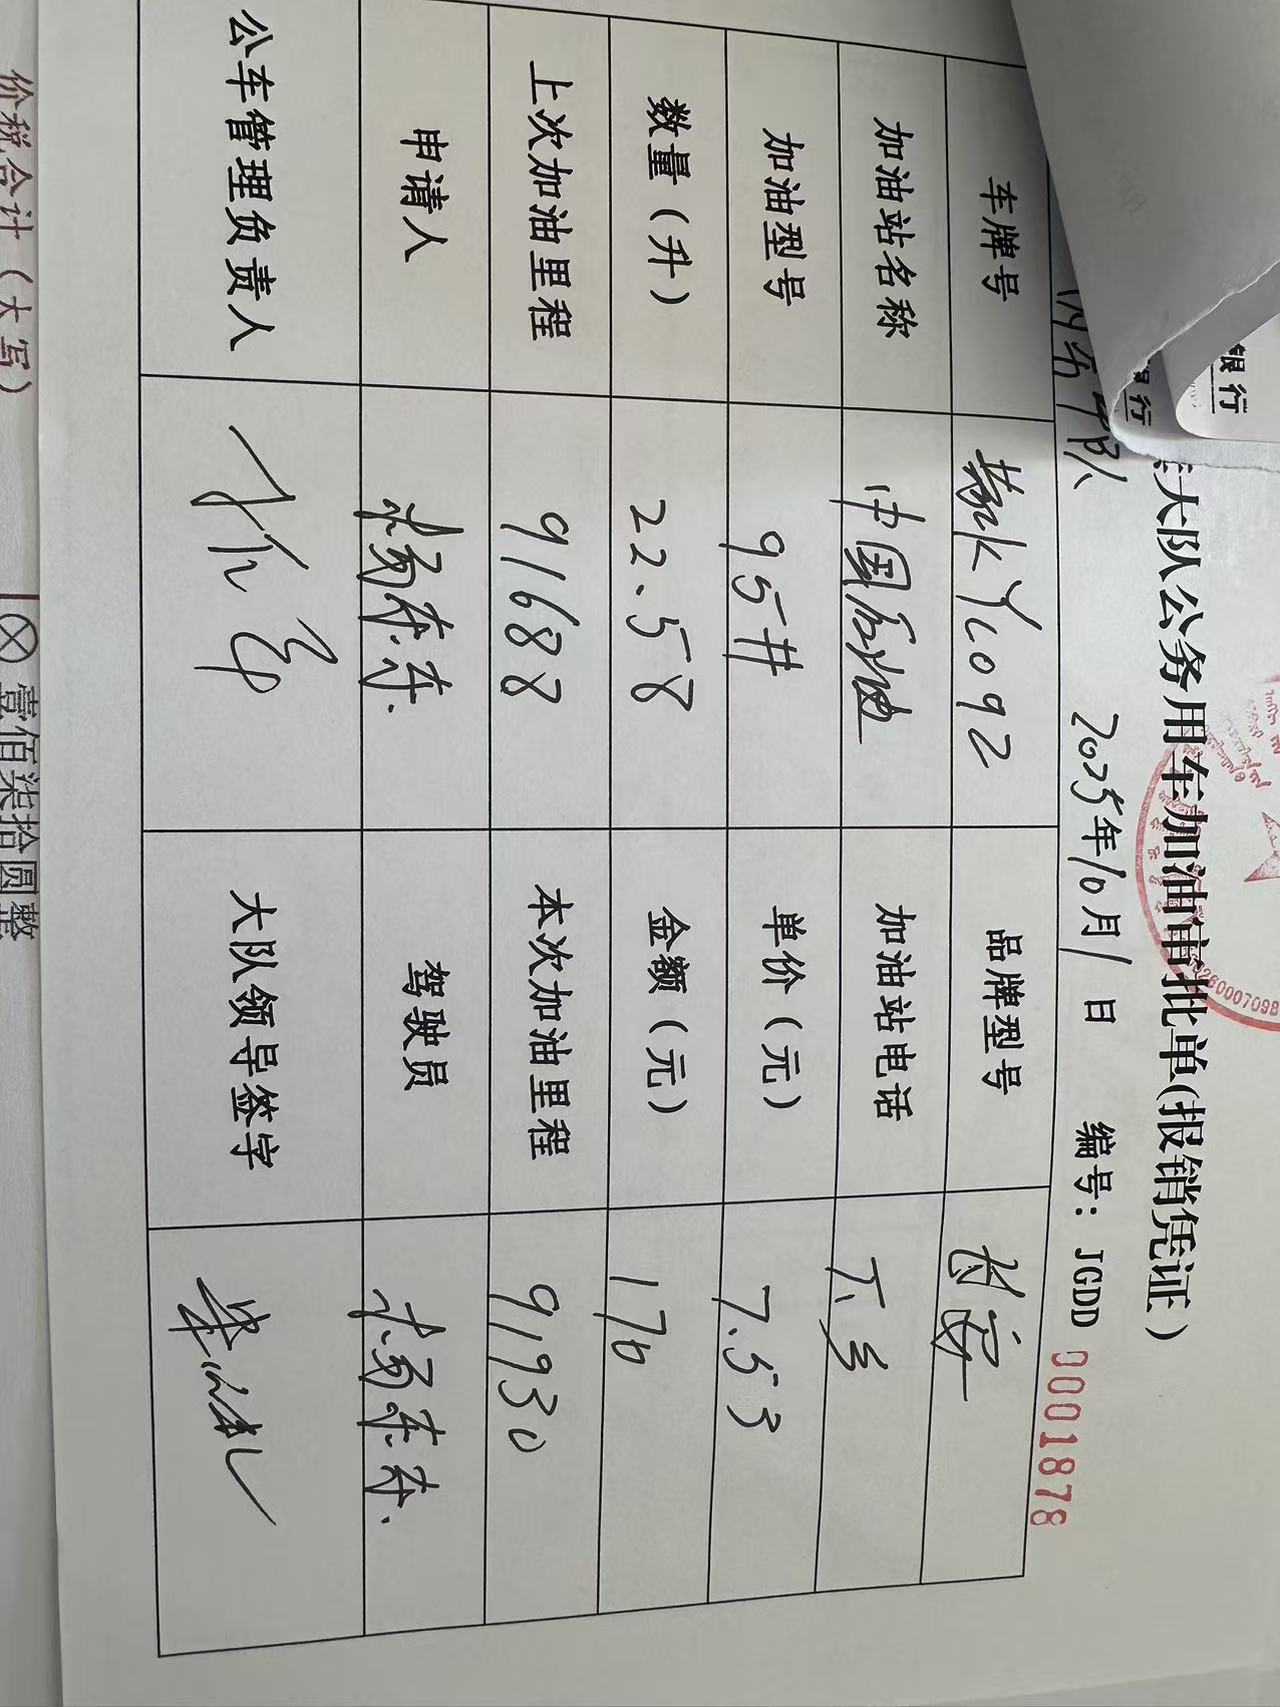 大队公务用车加油审批单(报销凭证)
2025年10月1日 编号：JGDD 0001878
车牌号 Y1092 品牌型号 长安
加油站名称 中国石油 加油站电话
加油型号 95# 单价（元） 7.53
数量（升） 22.58 金额（元） 170
上次加油里程 91688 本次加油里程 91930
申请人 驾驶员
公车管理负责人 大队领导签字
价税合计（大写） ⊗ 壹佰柒拾圆整
银行
银行